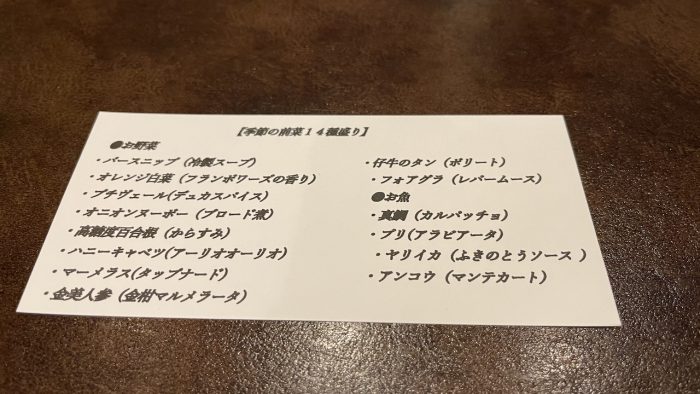 【季節の前菜１４種盛り】
●お野菜
・パースニップ（冷製スープ）
・オレンジ白菜（フランボワーズの香り）
・プチヴェール(デュカスパイス)
・オニオンヌーボー（ブロード煮）
・高糖度百合根（からすみ）
・ハニーキャベツ(アーリオオーリオ）
・マーメラス(タップナード)
・金美人参（金柑マルメラータ）
・仔牛のタン（ボリート）
・フォアグラ（レバームース）
●お魚
・真鯛（カルパッチョ）
・ブリ(アラビアータ)
・ヤリイカ（ふきのとうソース ）
・アンコウ（マンテカート）